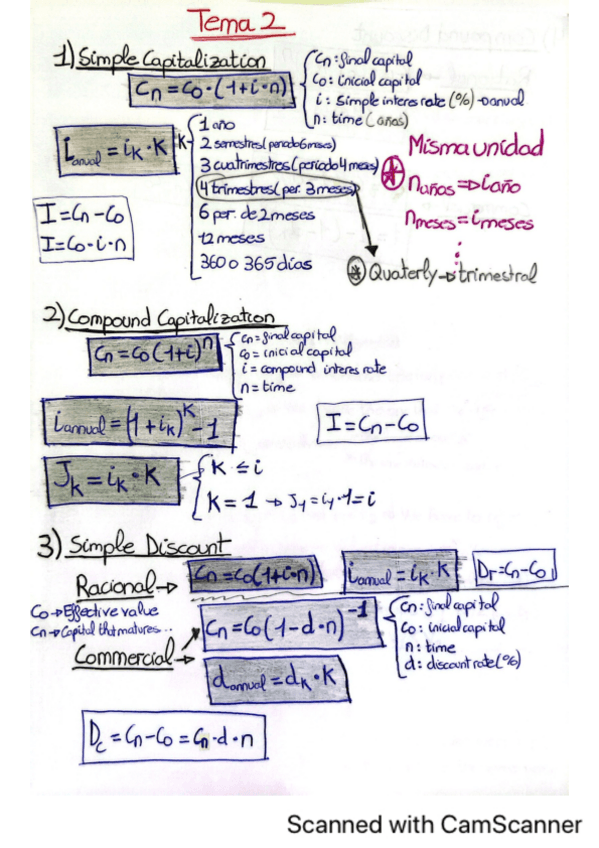 Tema 2
1) Simple Capitalization
Cn=Co·(1+i·n)
Cn: final capital
Co: inicial capital
i: simple interes rate (%)→anual
n: time (años)
i anual = iK·K
K
1 año
2 semestres (periodo 6 meses)
3 cuatrimestres (periodo 4 meses)
4 trimestres (per. 3 meses)
6 per. de 2 meses
12 meses
360 o 365 días
Misma unidad
* n años => i año
n meses = i meses
⋮
* Quaterly → trimestral
I=Cn-Co
I=Co·i·n
2) Compound Capitalization
Cn=Co(1+i)^n
Cn=final capital
Co=inicial capital
i=compound interes rate
n=time
i annual = (1+iK)^K-1
I=Cn-Co
JK=iK·K
K ≤ i
K=1 → J1=i1·1=i
3) Simple Discount
Racional→
Cn=Co(1+i·n)
i anual = iK·K
Dr=Cn-Co
Co→Effective value
Cn→Capital that matures..
Commercial→
Cn=Co(1-d·n)^-1
Cn: final capital
Co: inicial capital
n: time
d: discount rate (%)
d annual = dK·K
Dc=Cn-Co=Cn·d·n
Scanned with CamScanner